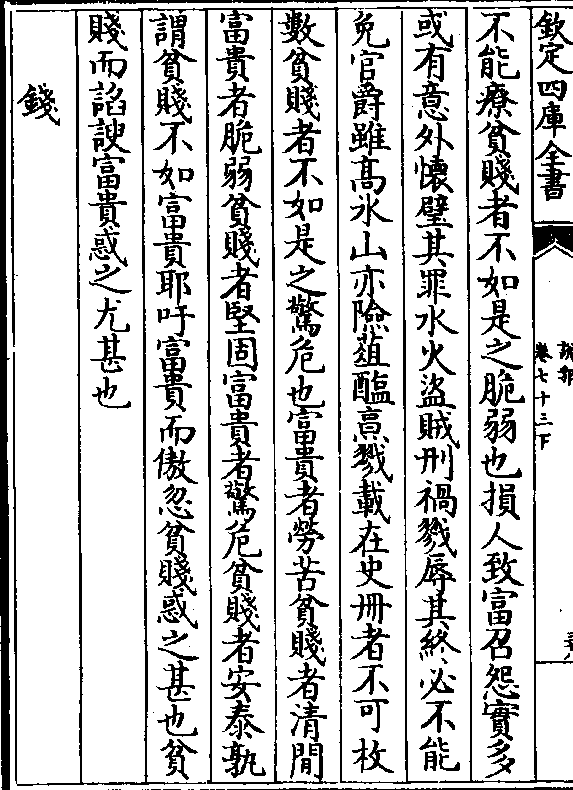 欽定四庫全書
說郛
卷七十三下
不能療貧賤者不如是之脆弱也損人致富召怨實多
或有意外懷璧其罪水火盜賊刑禍戮辱其終必不能
免官爵雖髙氷山亦險葅醢烹戮載在史冊者不可枚
數貧賤者不如是之驚危也富貴者勞苦貧賤者清閒
富貴者脆弱貧賤者堅固富貴者驚危貧賤者安泰孰
謂貧賤不如富貴耶吁富貴而傲忽貧賤惑之甚也貧
賤而諂諛富貴惑之尤甚也
錢